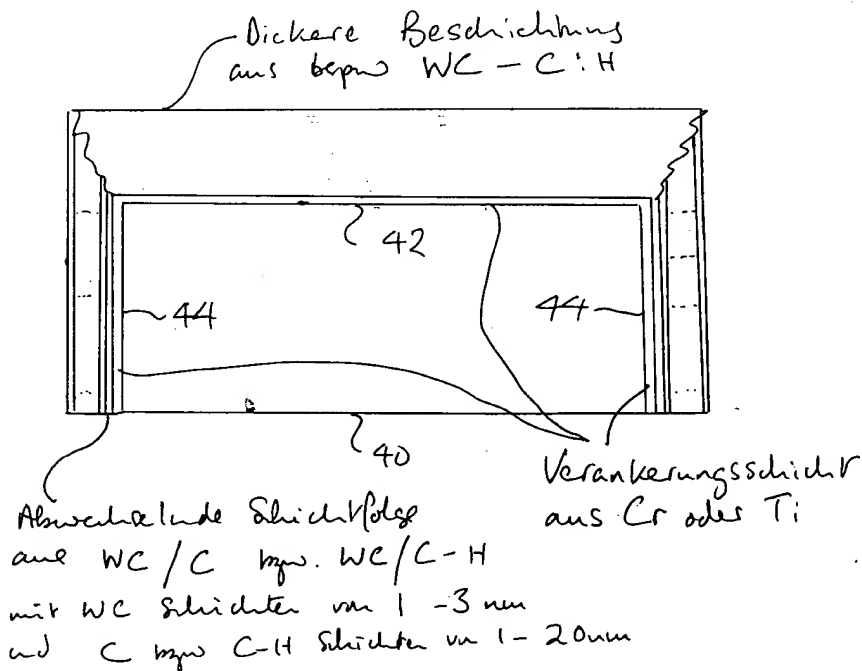 Dickere Beschichtung
aus bspw WC - C:H
42
44
44
40
Verankerungsschicht
aus Cr oder Ti
Abwechselnde Schichtfolge
aus WC/C bzw. WC/C-H
mit WC Schichten von 1 - 3 nm
und C bzw C-H Schichten von 1 - 20nm